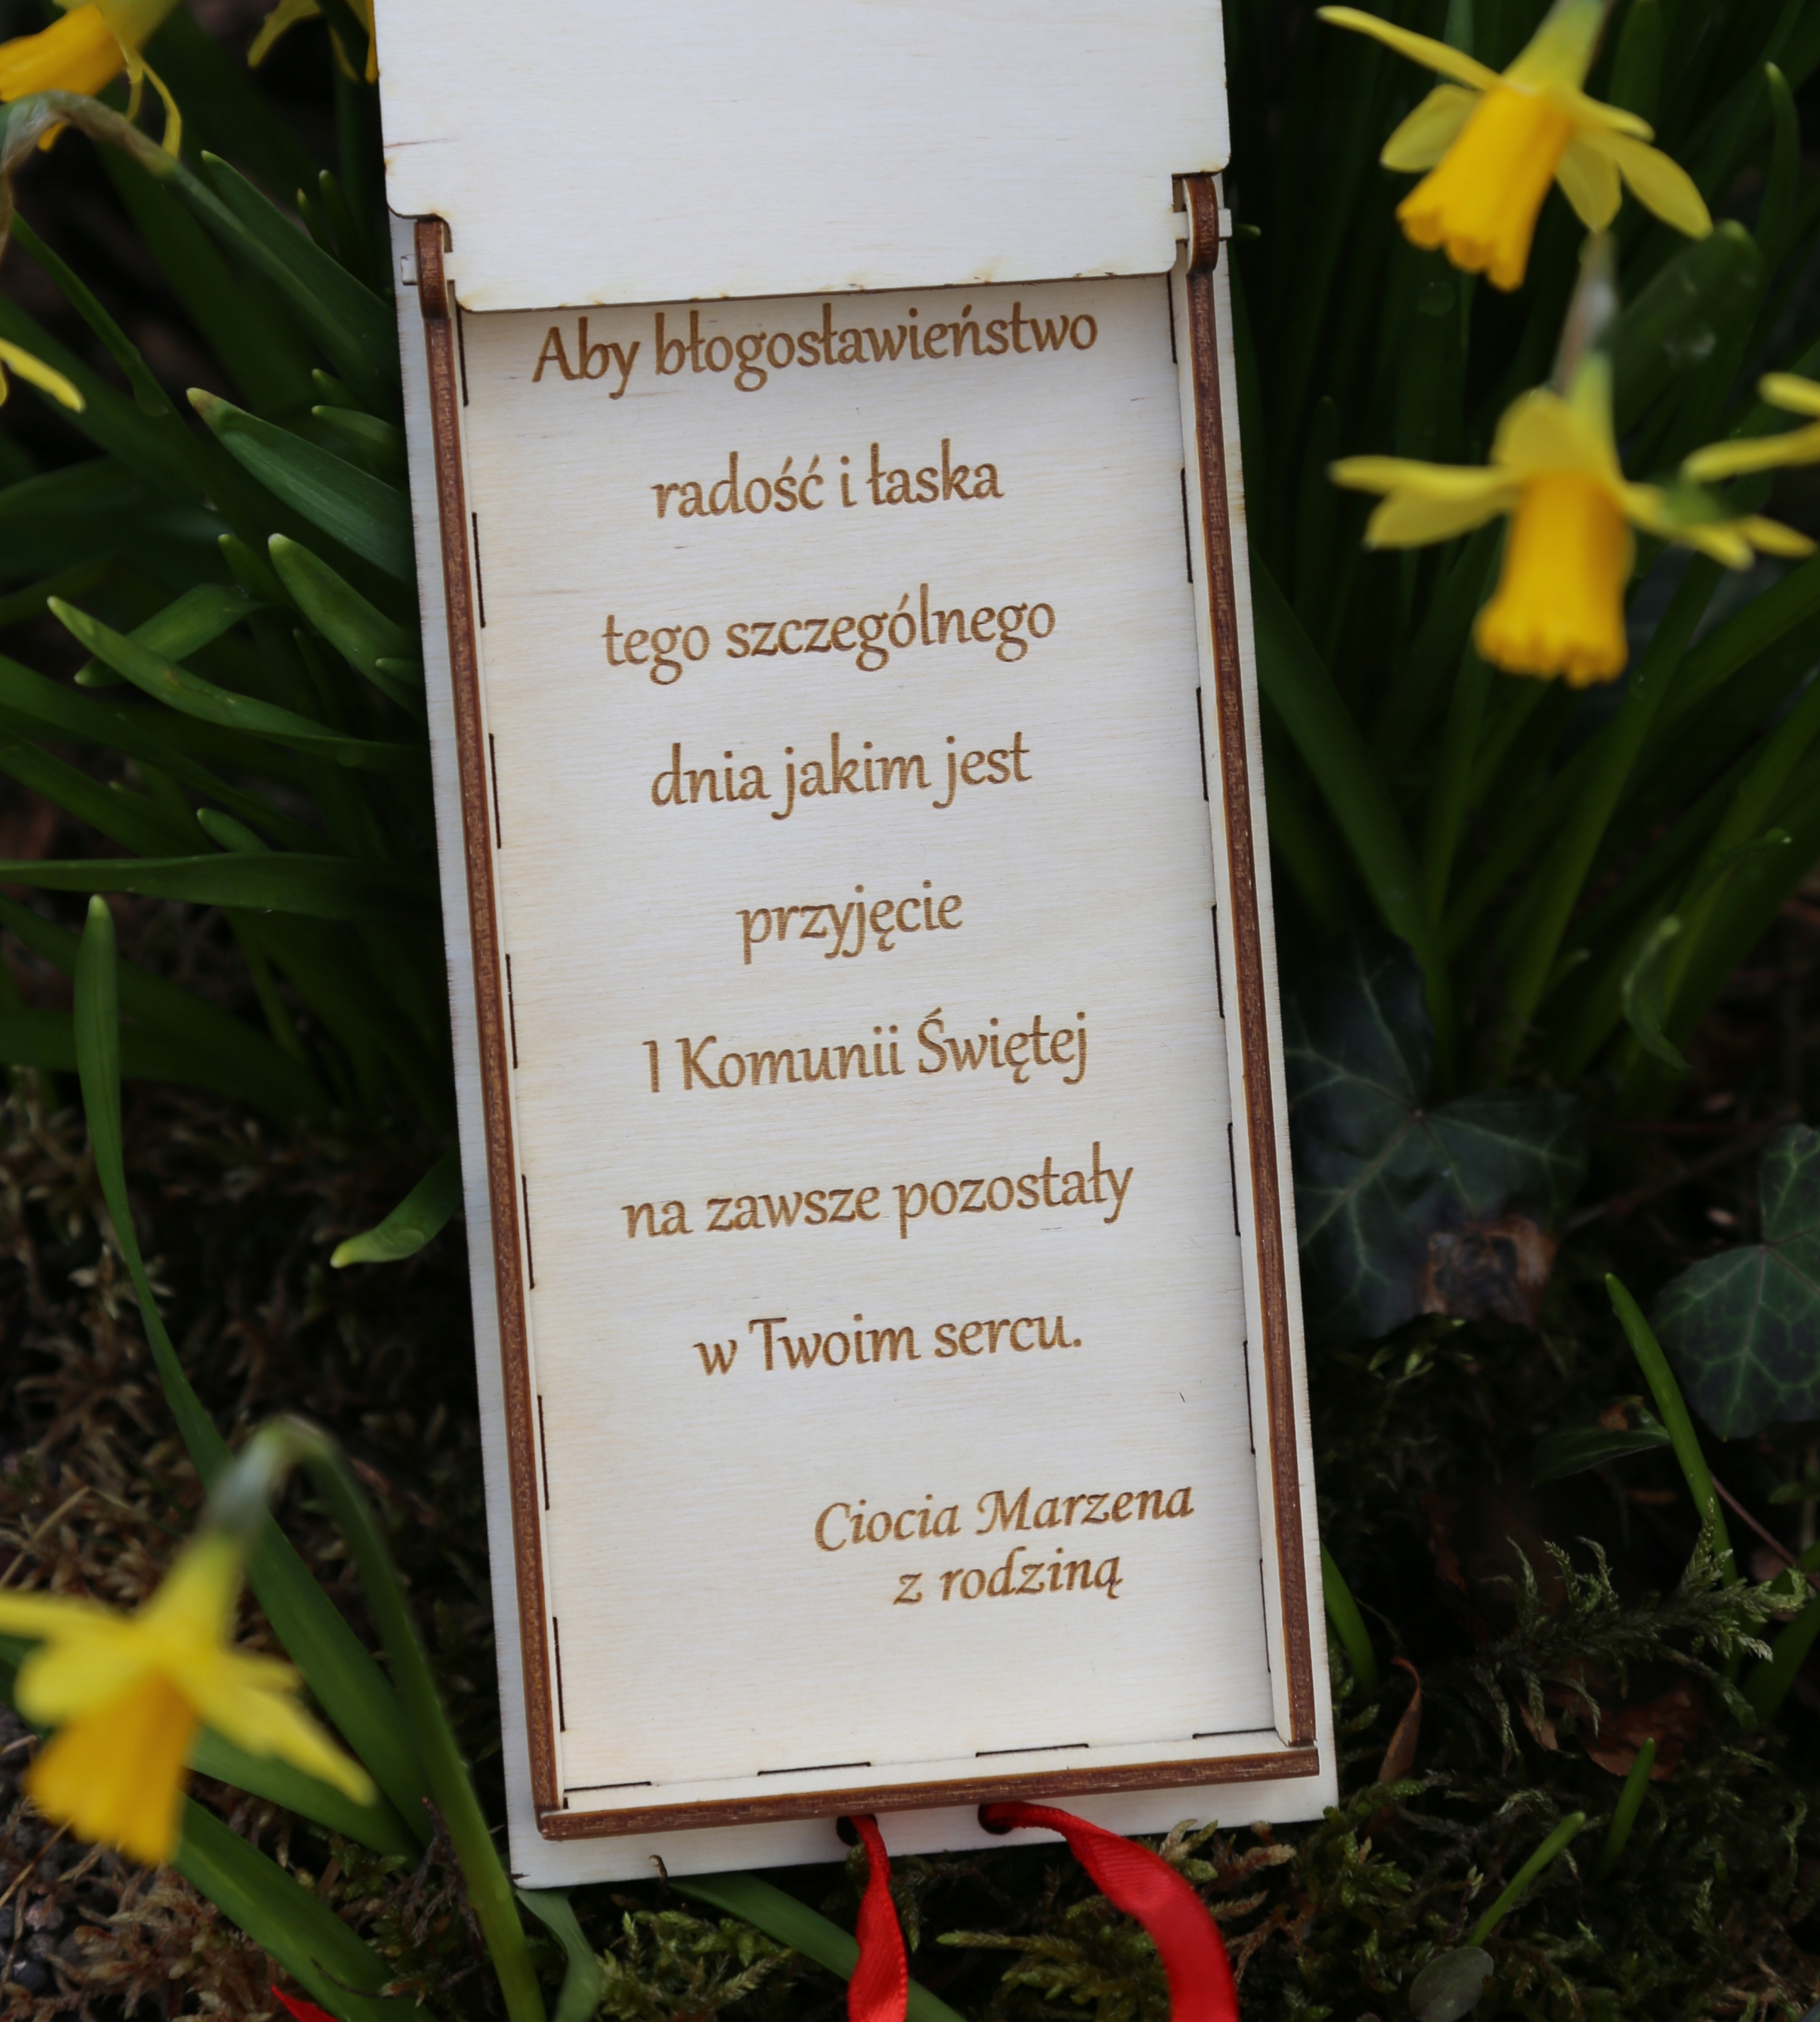 Aby błogosławieństwo
radość i łaska
tego szczególnego
dnia jakim jest
przyjęcie
I Komunii Świętej
na zawsze pozostały
w Twoim sercu.
Ciocia Marzena
z rodziną